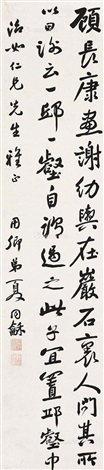 顧長康畫謝幼輿在巖石裏人問其所
以曰謝云一邱一壑自謂過之此子宜置邱壑中
治如仁兄先生雅正
用卿弟夏同龢